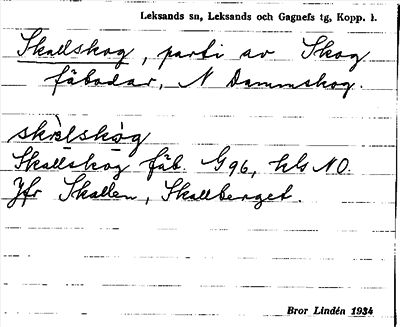 Leksands sn, Leksands och Gagnefs tg, Kopp. l.
Skallskog, parti av Skog
fäbodar, N Dammskog.
skàlskòg
Skallskog fäb. G96, kls NO.
Jfr Skallen, Skallberget.
Bror Lindén 1934